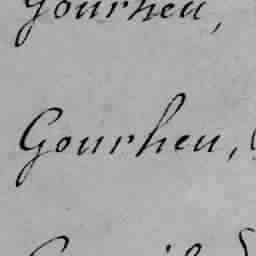 Gourheu,
Gourheu,